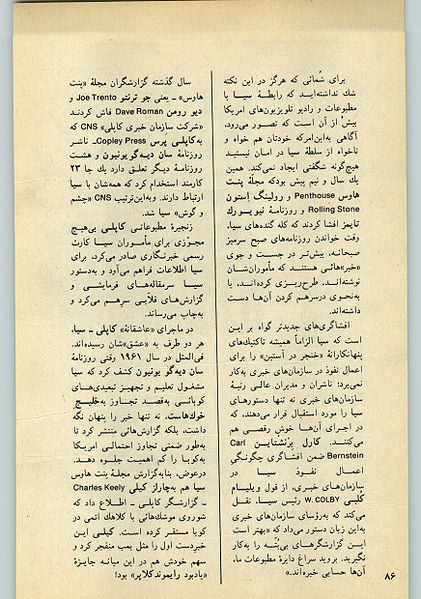 برای شمائی که هرگز در این نکته
شک نداشته‌اید که رابطهٔ سیا با
مطبوعات و رادیو تلویزیون‌های امریکا
بیش از آن است که تصور می‌رود،
آگاهی به‌این‌امرکه خودتان هم خواه و
ناخواه از سلطهٔ سیا در امان نیستید
هیچ‌گونه شگفتی ایجاد نمی‌کند. همین
یك سال و نیم پیش بودکه مجلّهٔ پنت
هاوس Penthouse و رولینگ اِستون
Rolling Stone و روزنامهٔ نیو یورك
تایمز افشا کردند که کله گنده‌های سیا،
وقت خواندن روزنامه‌های صبح سرمیز
صبحانه، بیش‌تر در جست و جوی
«خبر»هائی هستند که مأموران‌شان
نوشته‌اند، طرح‌ریزی کرده‌اند، یا
به‌نحوی درسرهم کردن آن‌ها دست
داشته‌اند.
افشاگری‌های جدیدتر گواه بر این
است که سیا الزاماً همیشه تاکتیك‌های
پنهانکارانهٔ «خنجر در آستین» را برای
اعمال نفوذ در سازمان‌های خبری به‌کار
نمی‌برد؛ ناشران و مدیران عالی رتبهٔ
سازمان‌های خبری نه تنها دستورهای
سیا را مورد استقبال قرار می‌دهند، که
در اجرای آن‌ها خوش رقصی هم
می‌کنند. کارل بِرنشتاین Carl
Bernstein ضمن افشاگری چگونگی
اعمال نفوذ سیا در
سازمان‌های خبری، از قول ویلیام
کلبی W. COLBY رئیس سیا، نقل
می‌کند که به‌رؤسای سازمان‌های خبری
به‌این زبان دستور می‌داد که «بهتر است
این گزارشگرهای بی‌بُتّه را به‌کار
نگیرید. بروید سراغ دایرهٔ مطبوعات ما،
آن‌ها حسابی خبره‌اند.»
سال گذشته گزارشگران مجلهٔ «پنت
هاوس» ـ یعنی جو ترنتو Joe Trento و
دیو رومن Dave Roman فاش کردند
«شرکت سازمان خبری کاپلی» CNS که
به‌کاپلی پرس Copley Press ـ ناشر
روزنامهٔ سان دیه‌گو یونیون و هشت
روزنامهٔ دیگر تعلق دارد یك جا ۲۳
کارمند استخدام کرد که همه‌شان با سیا
ارتباط دارند. و به‌این‌ترتیب CNS «چشم
و گوش» سیا شد.
زنجیرهٔ مطبوعاتی کاپلی بی‌هیچ
مجوّزی برای مأموران سیا کارت
رسمی خبرنگاری صادر می‌کرد، برای
سیا اطلاعات فراهم می‌آورد و به‌دستور
سیا سرمقاله‌های فرمایشی و
گزارش‌های قلّابی سرهم می‌کرد و
به‌چاپ می‌رساند.
در ماجرای «عاشقانهٔ» کاپلی ـ سیا،
هر دو طرف به «عشق»شان رسیده‌اند.
فی‌المثل در سال ۱۹۶۱ وقتی روزنامهٔ
سان دیه‌گو یونیون کشف کرد که سیا
مشغول تعلیم و تجهیز تبعیدی‌های
کوبائی به‌قصد تجاوز به‌خلیج
خوك‌هاست، نه تنها خبر را پنهان نگه
داشت، بلکه گزارش‌هائی منتشر کرد تا
به‌طور ضمنی تجاوز احتمالی امریکا
به‌کوبا را کم اهمیت جلوه دهد.
درعوض، بنابه‌گزارش مجلهٔ بنت هاوس
سیا هم به‌چارلز کیلی Charles Keely
ـ گزارشگر کاپلی ـ اطلاع داد که
شوروی موشك‌هائی با کلاهك اتمی در
کوبا مستقر کرده است. کیلی این
خبردست اول را مثل بمب منفجر کرد و
سهم خودش هم در این میانه جایزهٔ
«یادبود رایموند کلاپر» بود!
۸۶